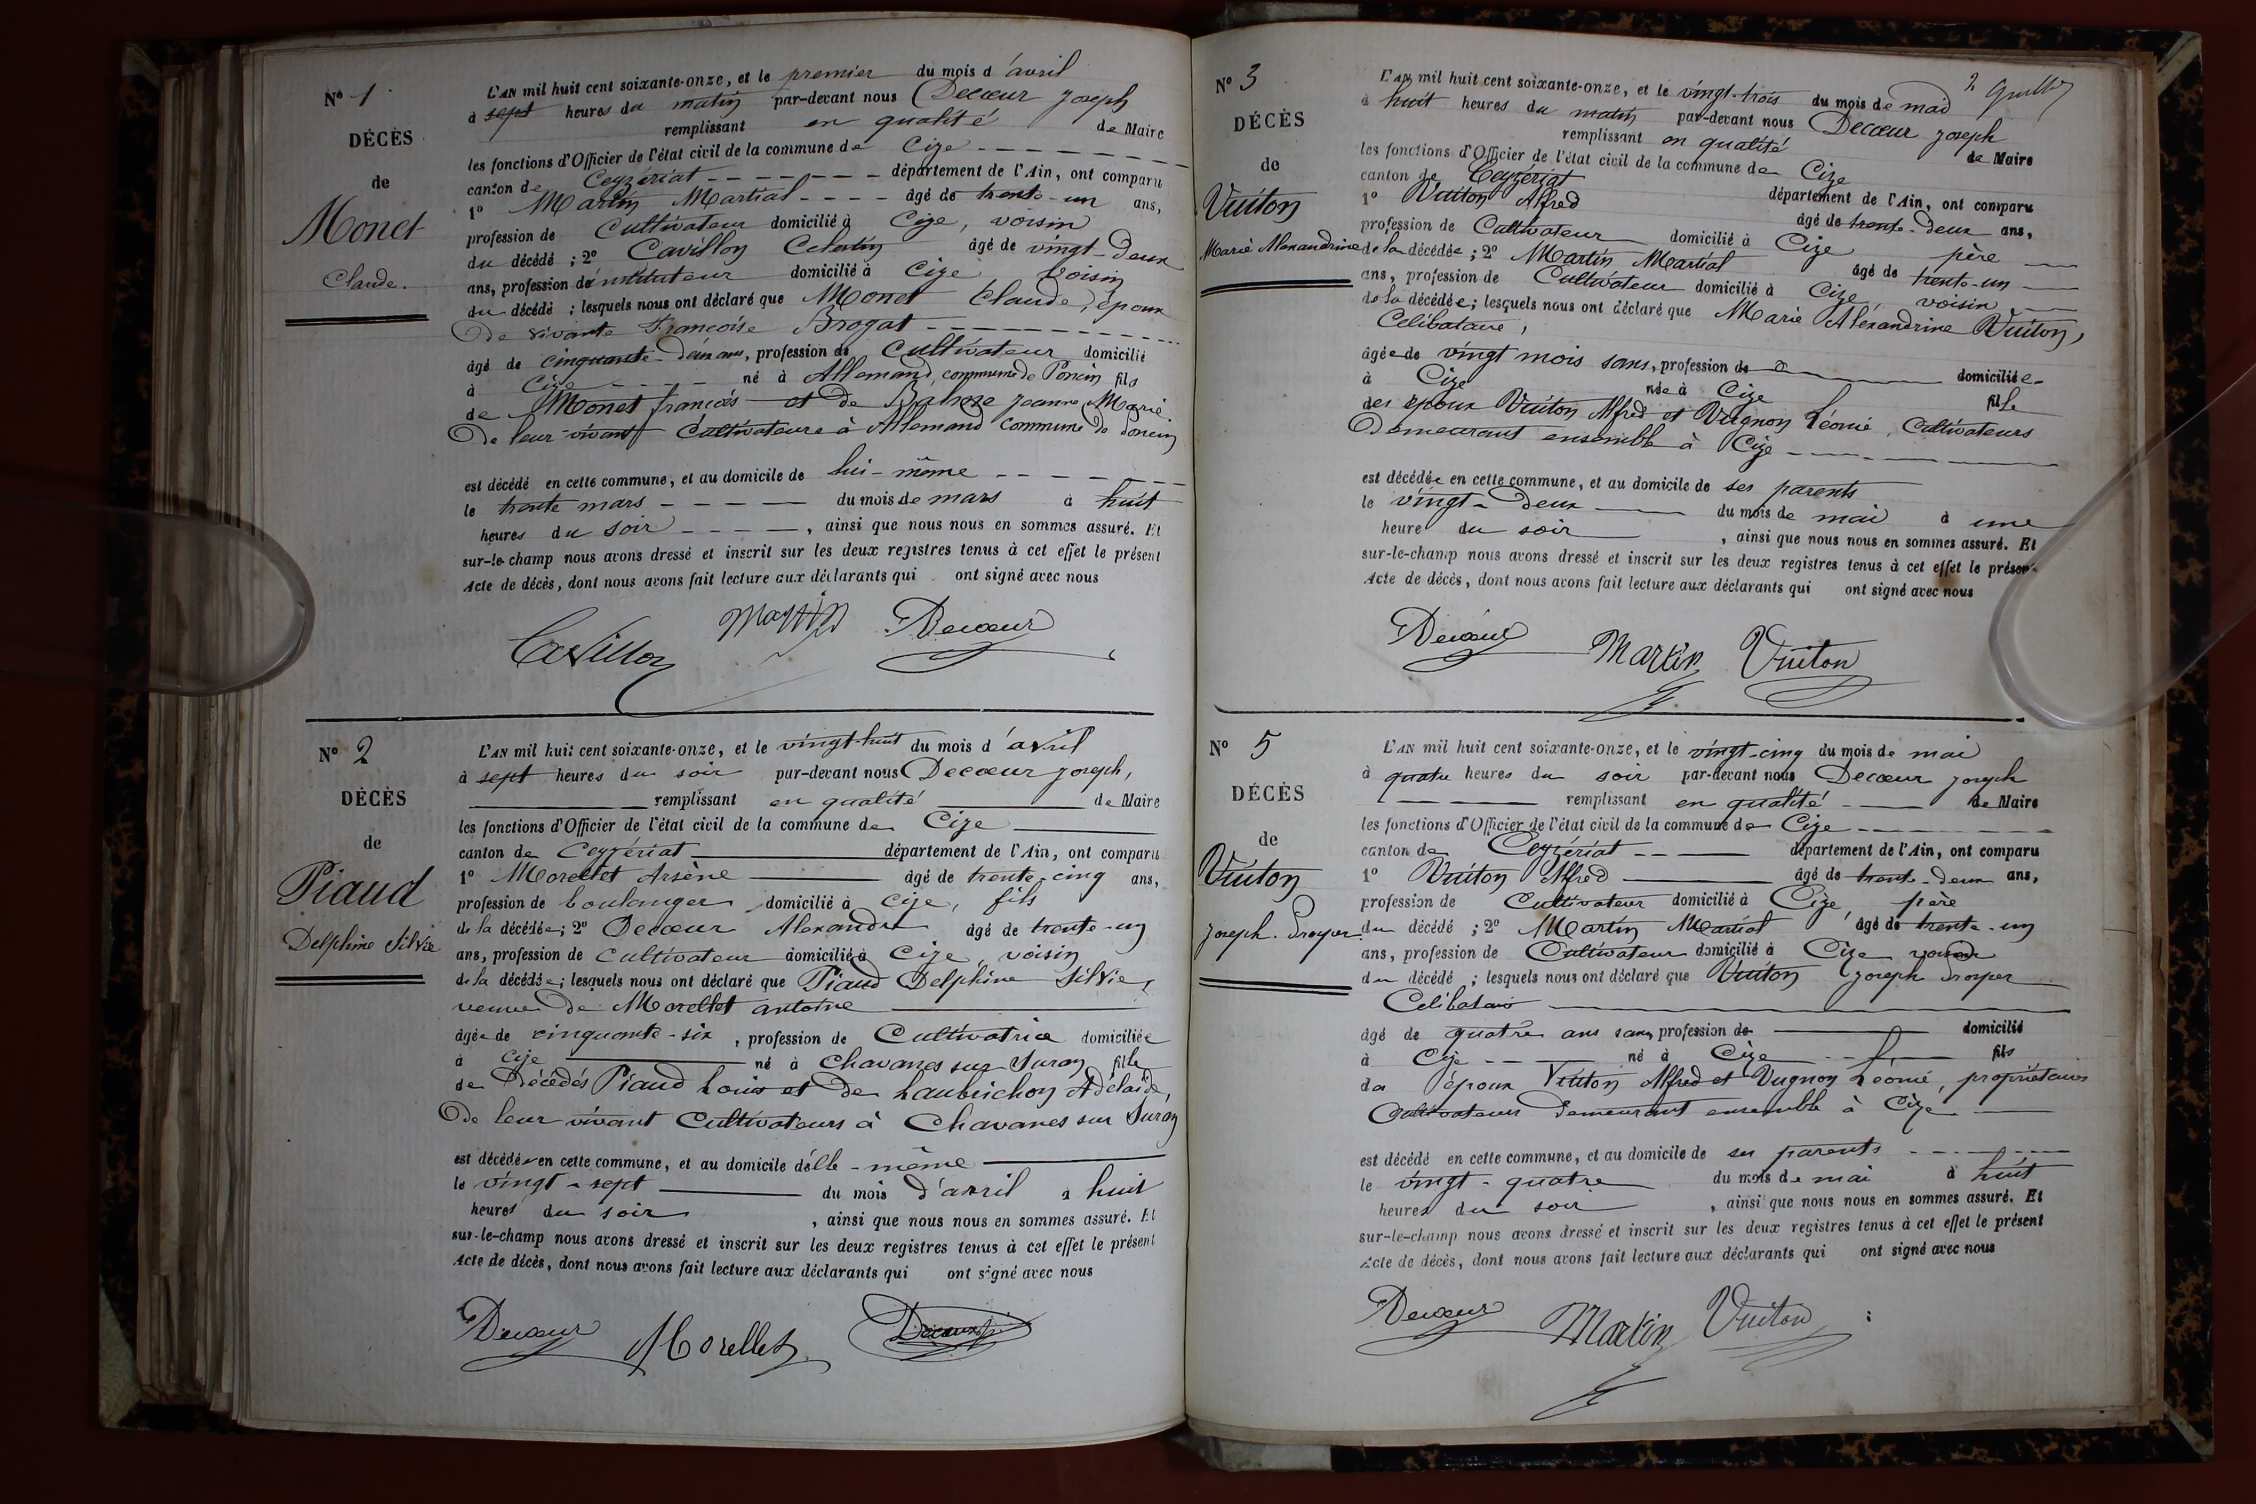 N° 1
DÉCÈS
de
Monet
Claude.
L'AN mil huit cent soixante-onze, et le premier du mois d'avril
à sept heures du matin par-devant nous Decœur Joseph
remplissant en qualité de Maire
les fonctions d'Officier de l'état civil de la commune de Cize
canton de Ceyzériat département de l'Ain, ont comparu
1° Martin Martial âgé de trente-un ans,
profession de Cultivateur domicilié à Cize, voisin
du décédé ; 2° Cavillon Celestin âgé de vingt-deux
ans, profession d'instituteur domicilié à Cize voisin
du décédé ; lesquels nous ont déclaré que Monet Claude, époux
de vivante Françoise Brogat
âgé de cinquante-deux ans, profession de Cultivateur domicilié
à Cize né à Allemand, commune de Poncin fils
de Monet françois et de Jeanne Marie
De leur vivant Cultivateurs à Allemand Commune de Poncin
est décédé en cette commune, et au domicile de lui-même
le trente mars du mois de mars à huit
heures du soir, ainsi que nous nous en sommes assuré. Et
sur-le-champ nous avons dressé et inscrit sur les deux registres tenus à cet effet le présent
Acte de décès, dont nous avons fait lecture aux déclarants qui ont signé avec nous
Cavillon Martin Decœur
N° 2
DÉCÈS
de
Piaud
Delphine Silvie
L'AN mil huit cent soixante-onze, et le vingt-huit du mois d'avril
à sept heures du soir par-devant nous Decœur Joseph,
remplissant en qualité de Maire
les fonctions d'Officier de l'état civil de la commune de Cize
canton de Ceyzériat département de l'Ain, ont comparu
1° Morellet Arsène âgé de trente-cinq ans,
profession de boulanger domicilié à Cize, fils
de la décédée ; 2° Decœur Alexandre âgé de trente-un
ans, profession de cultivateur domicilié à Cize, voisin
de la décédée ; lesquels nous ont déclaré que Piaud Delphine Silvie,
veuve de Morellet antoine
âgée de cinquante-six, profession de Cultivatrice domiciliée
à Cize né à Chavanes sur Suran fille
de Décédés Piaud Louis et de Laubrichon Adélaïde,
De leur vivant Cultivateurs à Chavanes sur Suran
est décédée en cette commune, et au domicile d'elle-même
le vingt-sept du mois d'avril à huit
heures du soir, ainsi que nous nous en sommes assuré. Et
sur-le-champ nous avons dressé et inscrit sur les deux registres tenus à cet effet le présent
Acte de décès, dont nous avons fait lecture aux déclarants qui ont signé avec nous
Decœur Morellet Decœur
2
N° 3
DÉCÈS
de
Vuiton
Marie Alexandrine
L'AN mil huit cent soixante-onze, et le vingt-trois du mois de mai
à huit heures du matin par-devant nous Decœur Joseph
remplissant en qualité de Maire
les fonctions d'Officier de l'état civil de la commune de Cize
canton de Ceyzériat département de l'Ain, ont comparu
1° Vuiton Alfred âgé de trente-deux ans,
profession de Cultivateur domicilié à Cize père
de la décédée ; 2° Martin Martial âgé de trente-un
ans, profession de Cultivateur domicilié à Cize, voisin
de la décédée ; lesquels nous ont déclaré que Marie Alexandrine Vuiton,
Celibataire,
âgée de vingt mois sans, profession de domiciliée
à Cize née à Cize fille
des époux Vuiton Alfred et Vugnon Léonie, Cultivateurs
Demeurant ensemble à Cize
est décédée en cette commune, et au domicile de ses parents
le vingt-deux du mois de mai à une
heure du soir, ainsi que nous nous en sommes assuré. Et
sur-le-champ nous avons dressé et inscrit sur les deux registres tenus à cet effet le présent
Acte de décès, dont nous avons fait lecture aux déclarants qui ont signé avec nous
Decœur Martin Vuiton
N° 5
DÉCÈS
de
Vuiton
Joseph Prosper
L'AN mil huit cent soixante-onze, et le vingt-cinq du mois de mai
à quatre heures du soir par-devant nous Decœur Joseph
remplissant en qualité de Maire
les fonctions d'Officier de l'état civil de la commune de Cize
canton de Ceyzériat département de l'Ain, ont comparu
1° Vuiton Alfred âgé de trente-deux ans,
profession de Cultivateur domicilié à Cize, père
du décédé ; 2° Martin Martial âgé de trente-un
ans, profession de Cultivateur domicilié à Cize voisin
du décédé ; lesquels nous ont déclaré que Vuiton Joseph Prosper
Celibataire
âgé de quatre ans sans, profession de domicilié
à Cize né à Cize fils
de époux Vuiton Alfred et Vugnon Léonie, propriétaires
Cultivateurs demeurant ensemble à Cize
est décédé en cette commune, et au domicile de ses parents
le vingt-quatre du mois de mai à huit
heures du soir, ainsi que nous nous en sommes assuré. Et
sur-le-champ nous avons dressé et inscrit sur les deux registres tenus à cet effet le présent
Acte de décès, dont nous avons fait lecture aux déclarants qui ont signé avec nous
Decœur Martin Vuiton